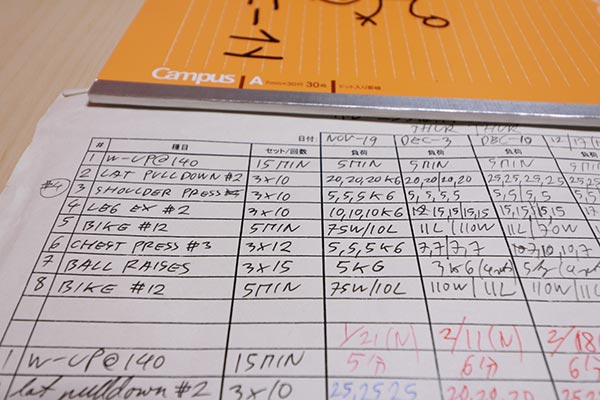 トレーニ
Campus A 7mm×30行 30枚 ドット入り罫線
THUR THUR
日付: NOV-19 DEC-3 DEC-10 12/17
# 種目 セット/回数 負荷 負荷 負荷 負荷
1 W-UP@140 15MIN 5MIN 5MIN 5MIN 5MIN
2 LAT PULLDOWN #2 3×10 20,20,20KG 20,20,20,20 25,25,25,25
#4 3 SHOULDER PRESS 3×10 5,5,5KG 5,5,5,5 5,5,5,5 5,5
4 LEG EX #2 3×10 10,10,10KG 15,15,15 15,15,15,15
5 BIKE #12 5MIN 75W/10L 11L/110W 11L/70W
6 CHEST PRESS #3 3×12 5,5,5KG 7,7,7,7 10,7,10,7
7 BALL RAISES 3×15 5KG 3KG
8 BIKE #12 5MIN 75W/10L 110W/11L 110W/11L 110W
1/21(N) 2/11(N) 2/18
1 W-UP@140 15MIN 5分 6分 6分
lat pulldown #2 3×10 25,25,25 20,20,20